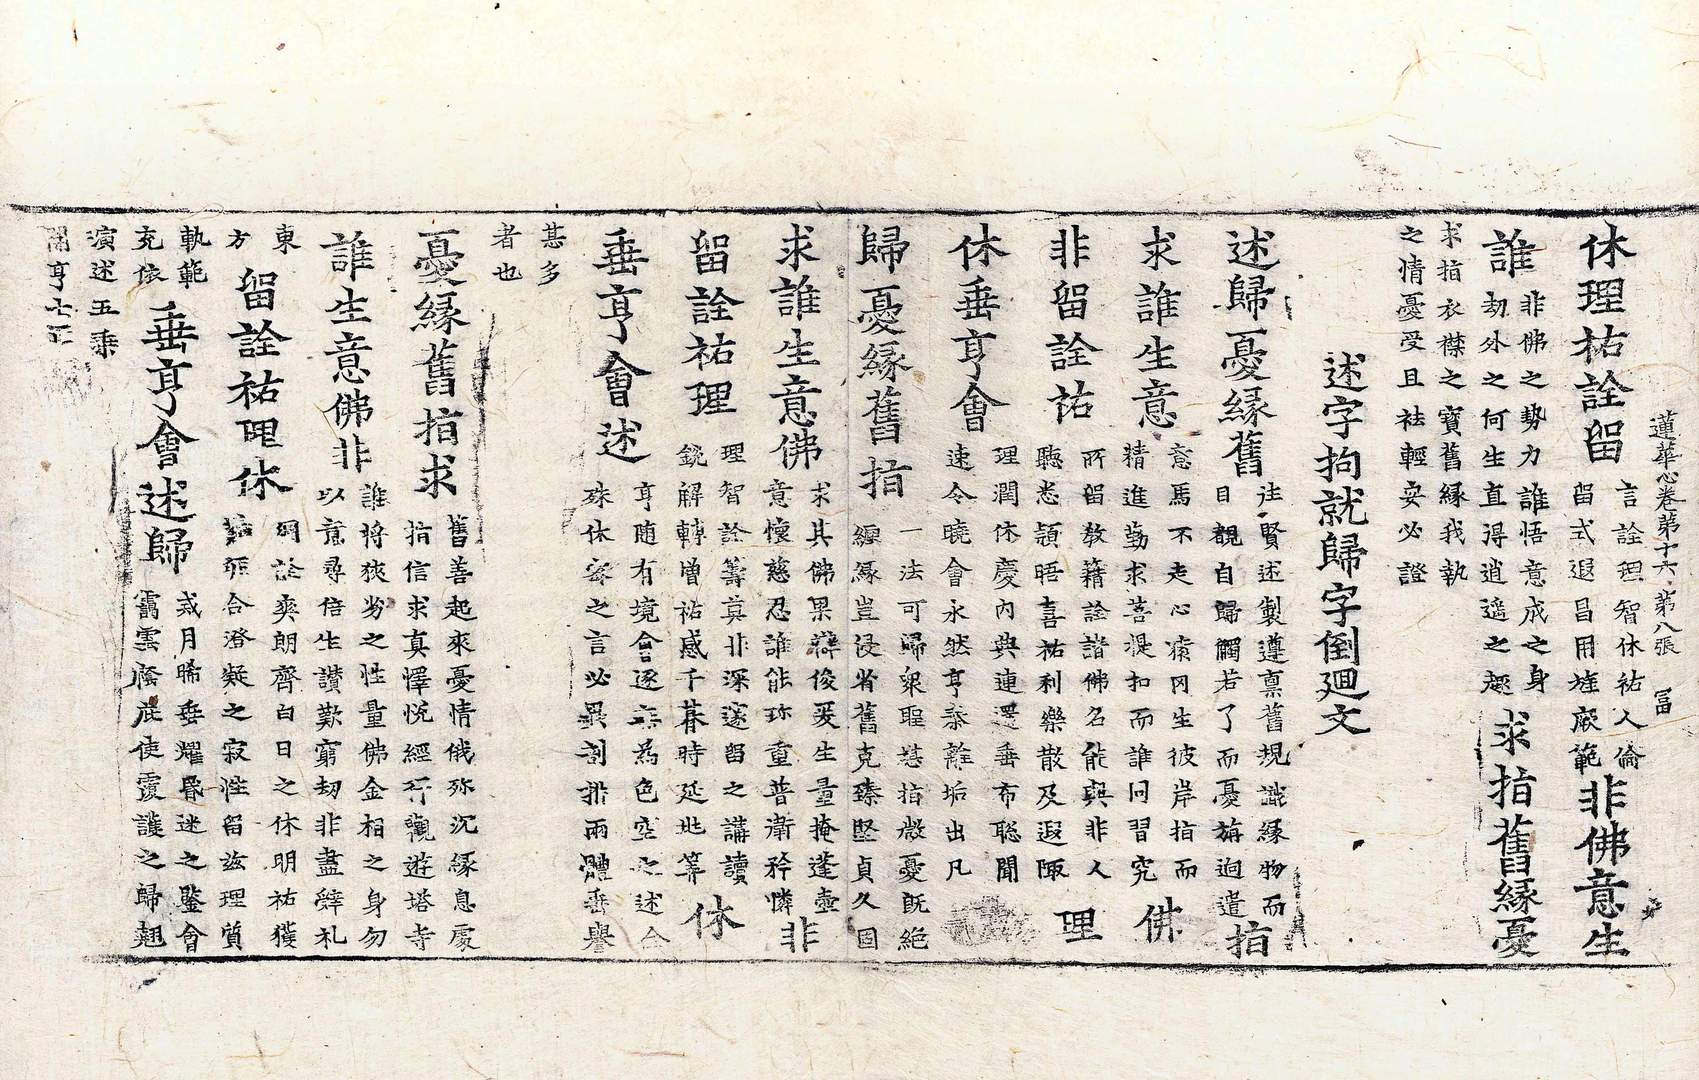 休理祐詮留 言詮理智休祐人倫 非佛意生
留式遐昌用旌厥範
誰 非佛之勢力誰悟意成之身 求指舊緣憂
劫外之何生直得逍遥之趣
求指衣襟之寶舊緣我執
之情憂受且袪輕安必證
蓮華心卷第十六 第八張 冨
述字拘就歸字倒迴文
述歸憂緣舊 往賢述製遵禀舊規識緣物而 指
目覩自歸觸若了而憂旃迴遣
求誰生意 意馬不走心猿罔生彼岸指而 佛
精進勤求菩提扣而誰同習究
非留詮祐 所留教籍詮諸佛名能與非人 理
聴悉頴晤喜祐利樂散及遐陬
休垂亨會 理潤休慶内典連邐垂布聡聞
速令曉會永然亨泰離垢出凡
歸憂緣舊指 一法可歸衆聖悲指微憂既絶
緾緣豈侵省舊克臻堅貞久固
求誰生意佛 求其佛果辯俊爰生量掩蓬壺 非
意懷慈忍誰能珎重普衛矜憐
留詮祐理 理智詮籌莫非深邃留之講讀 休
鋭解轉增祐感千暮時延此等
垂亨會述 亨随有境會逐立為色空之述合
殊休容之言必最剖排兩體垂譽
甚多
者也
憂緣舊指求 舊善起來憂情俄弥沉緣息慶
指信求真懌悦經行觀遊塔寺
誰生意佛非 誰將狹劣之性量佛金相之身勿
以意尋倍生讚歎窮劫非盡辤札
東 留詮祐理休 詮奕朗齊白日之休明祐獲
方 合澄凝之寂性留兹理質
軌範 垂亨會述歸 戒月晞垂耀昏迷之鑒會
充依 靄雲癊庇使覆護之歸翹
演述五乘
開亨七正